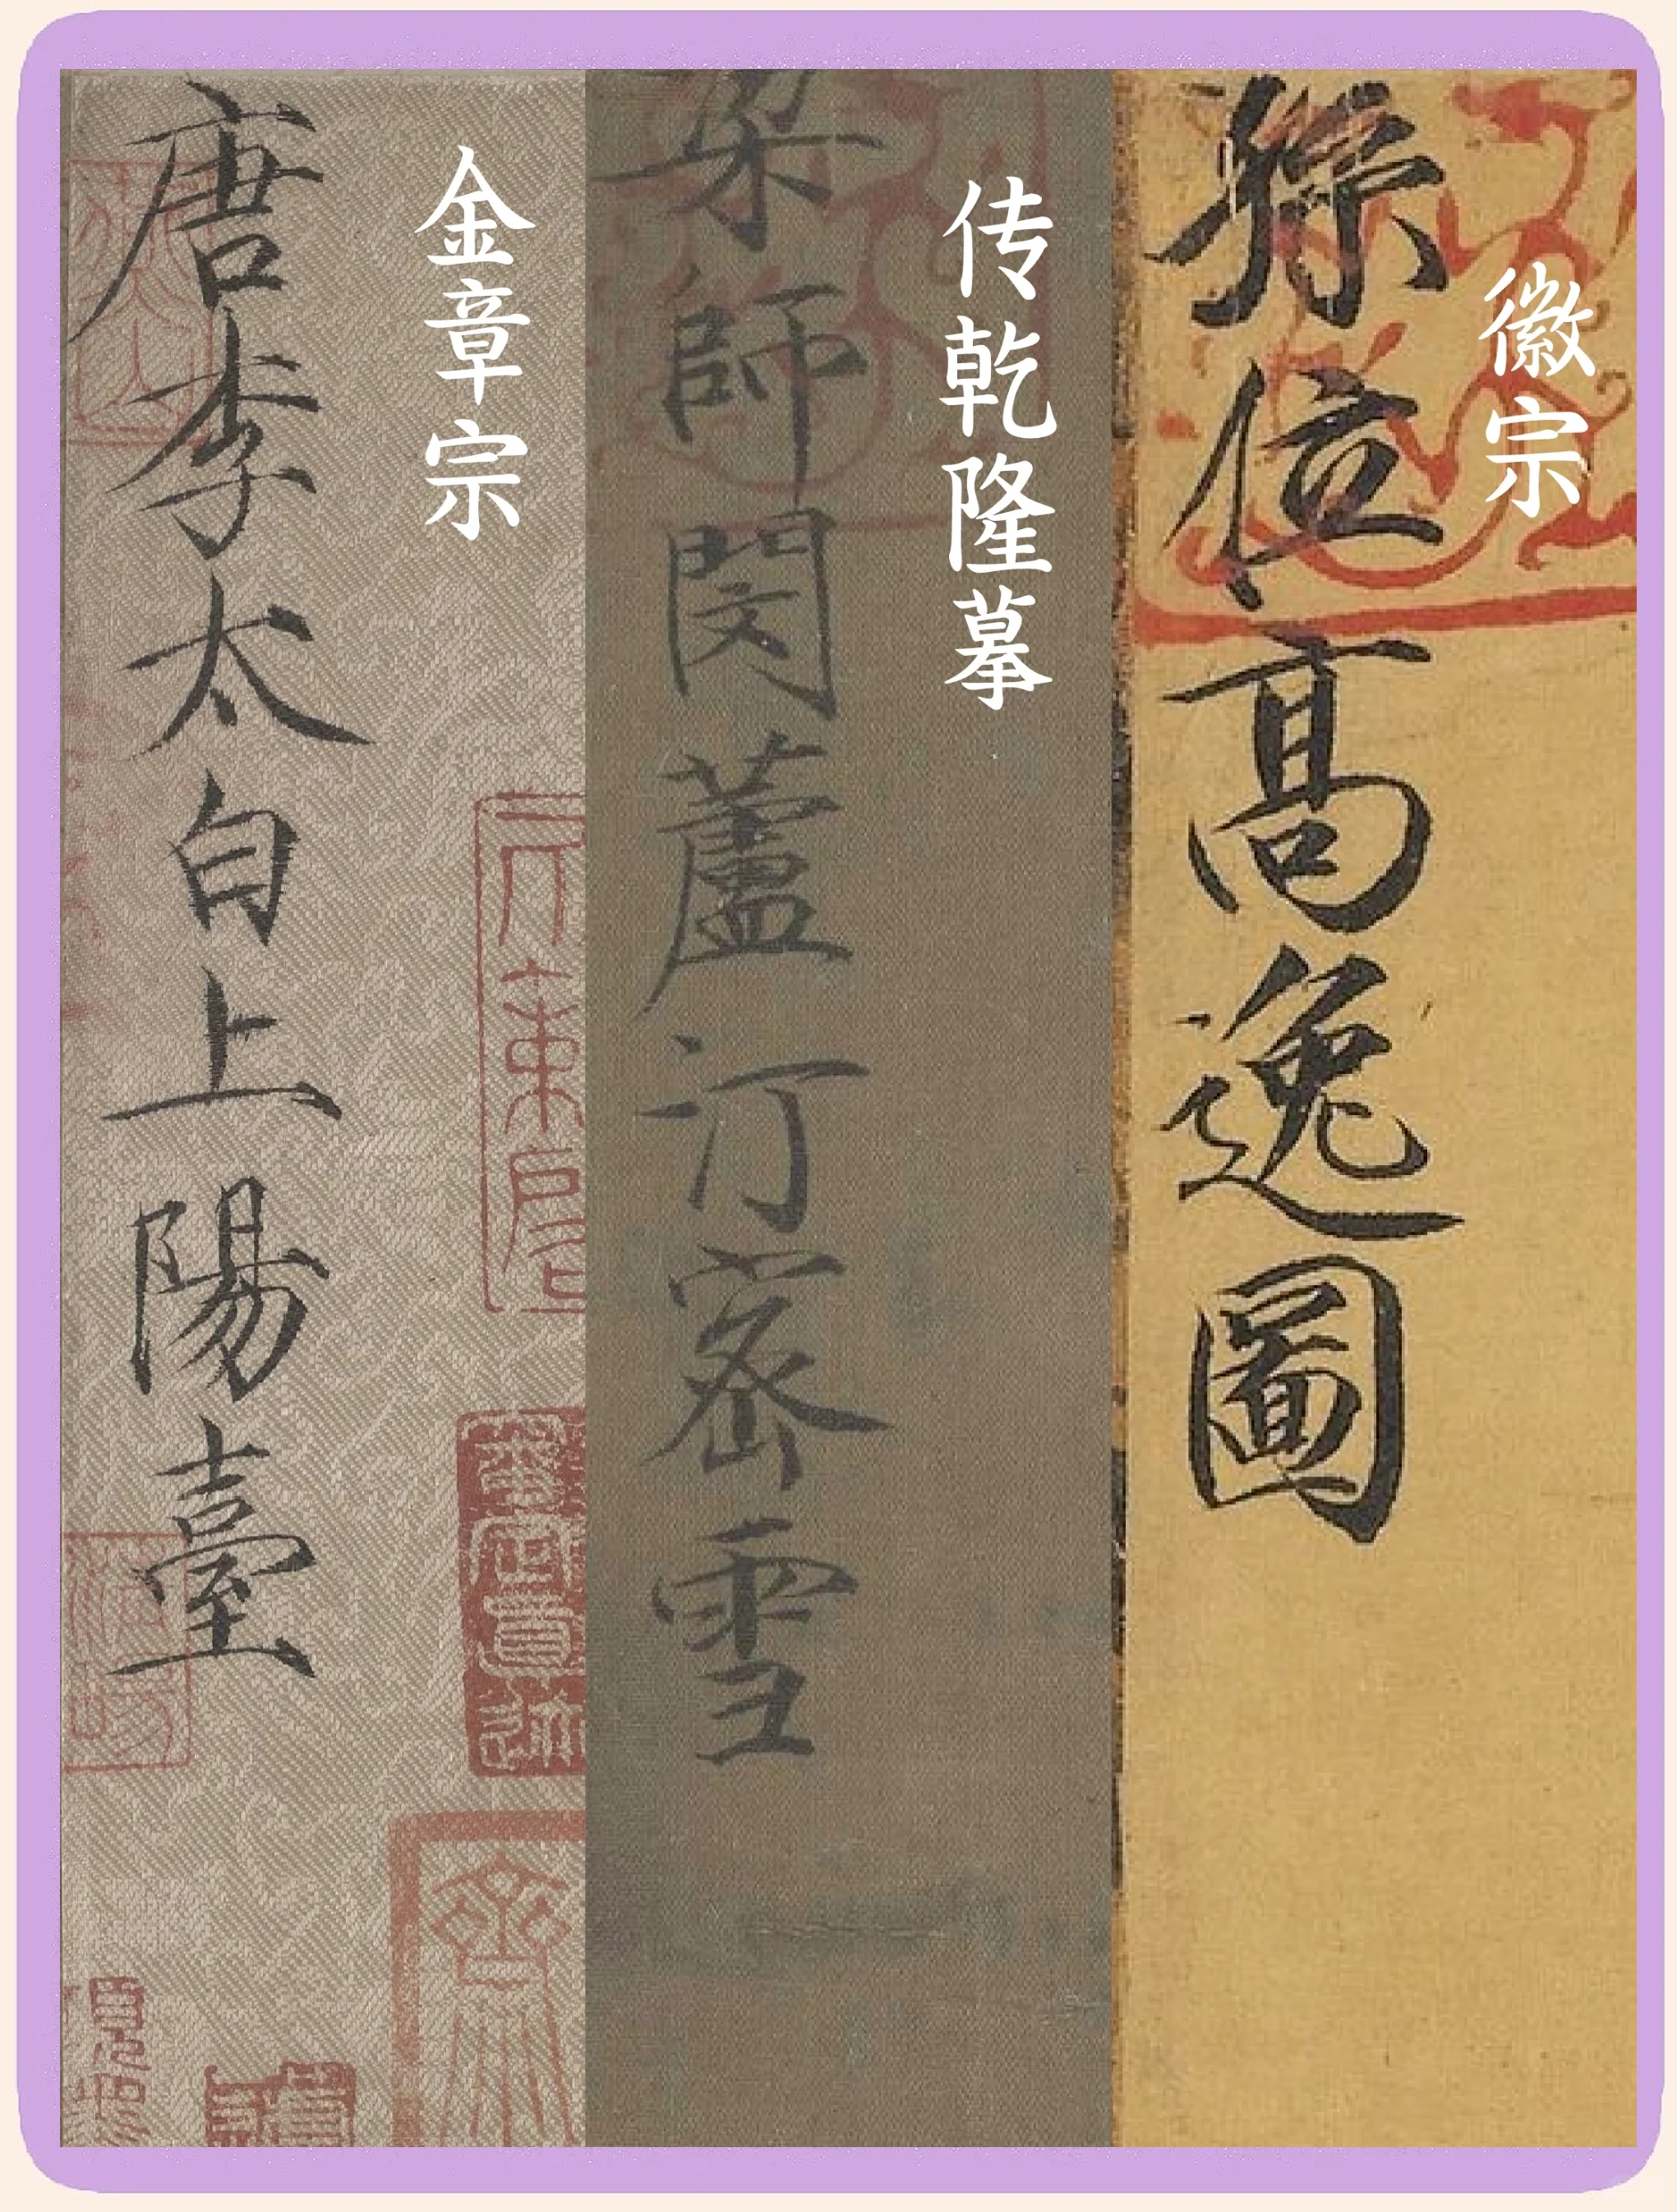 徽宗
孫位高逸圖
传乾隆摹
梁師閔蘆汀密雪
金章宗
唐李太白上陽臺